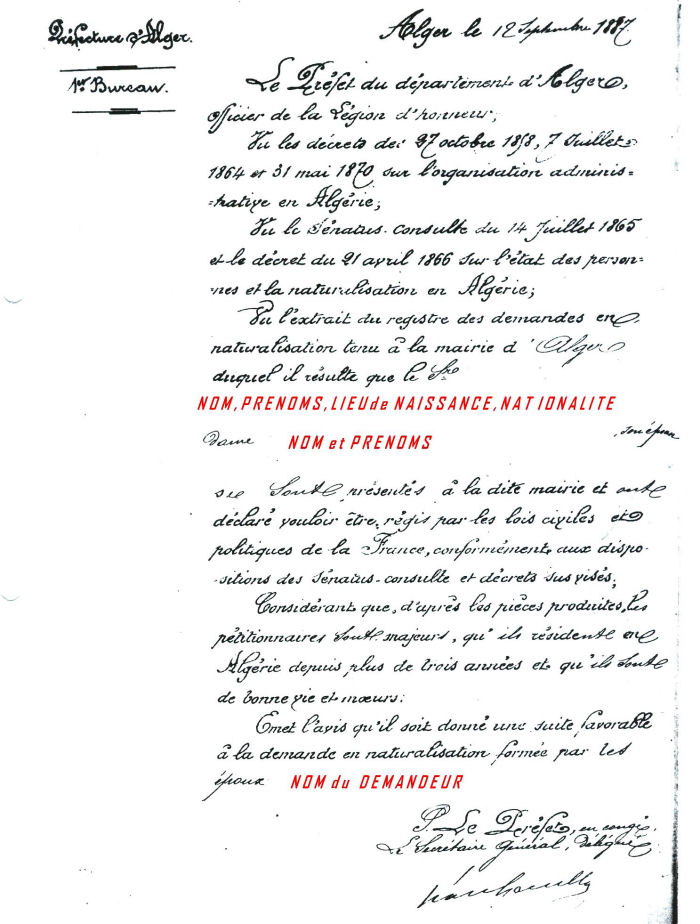 Préfecture d'Alger.
1er Bureau.
Alger le 12 Septembre 1887.
Le Préfet du département d'Alger,
officier de la Légion d'honneur;
Vu les décrets des 27 octobre 1858, 7 Juillet
1864 et 31 mai 1870 sur l'organisation adminis=
=trative en Algérie;
Vu le Sénatus-consulte du 14 Juillet 1865
et le décret du 21 avril 1866 sur l'état des person=
=nes et la naturalisation en Algérie;
Vu l'extrait du registre des demandes en
naturalisation tenu à la mairie d'Alger
duquel il résulte que le Sr
NOM, PRENOMS, LIEU de NAISSANCE, NATIONALITE
dame NOM et PRENOMS son épouse
se sont présentés à la dite mairie et ont
déclaré vouloir être régis par les lois civiles et
politiques de la France, conformément aux dispo-
-sitions des Sénatus-consulte et décrets sus visés;
Considérant que, d'après les pièces produites, les
pétitionnaires sont majeurs, qu'ils résident en
Algérie depuis plus de trois années et qu'ils sont
de bonne vie et mœurs:
Emet l'avis qu'il soit donné une suite favorable
à la demande en naturalisation formée par les
époux NOM du DEMANDEUR
P. Le Préfet, en congé.
Le Secrétaire Général, délégué